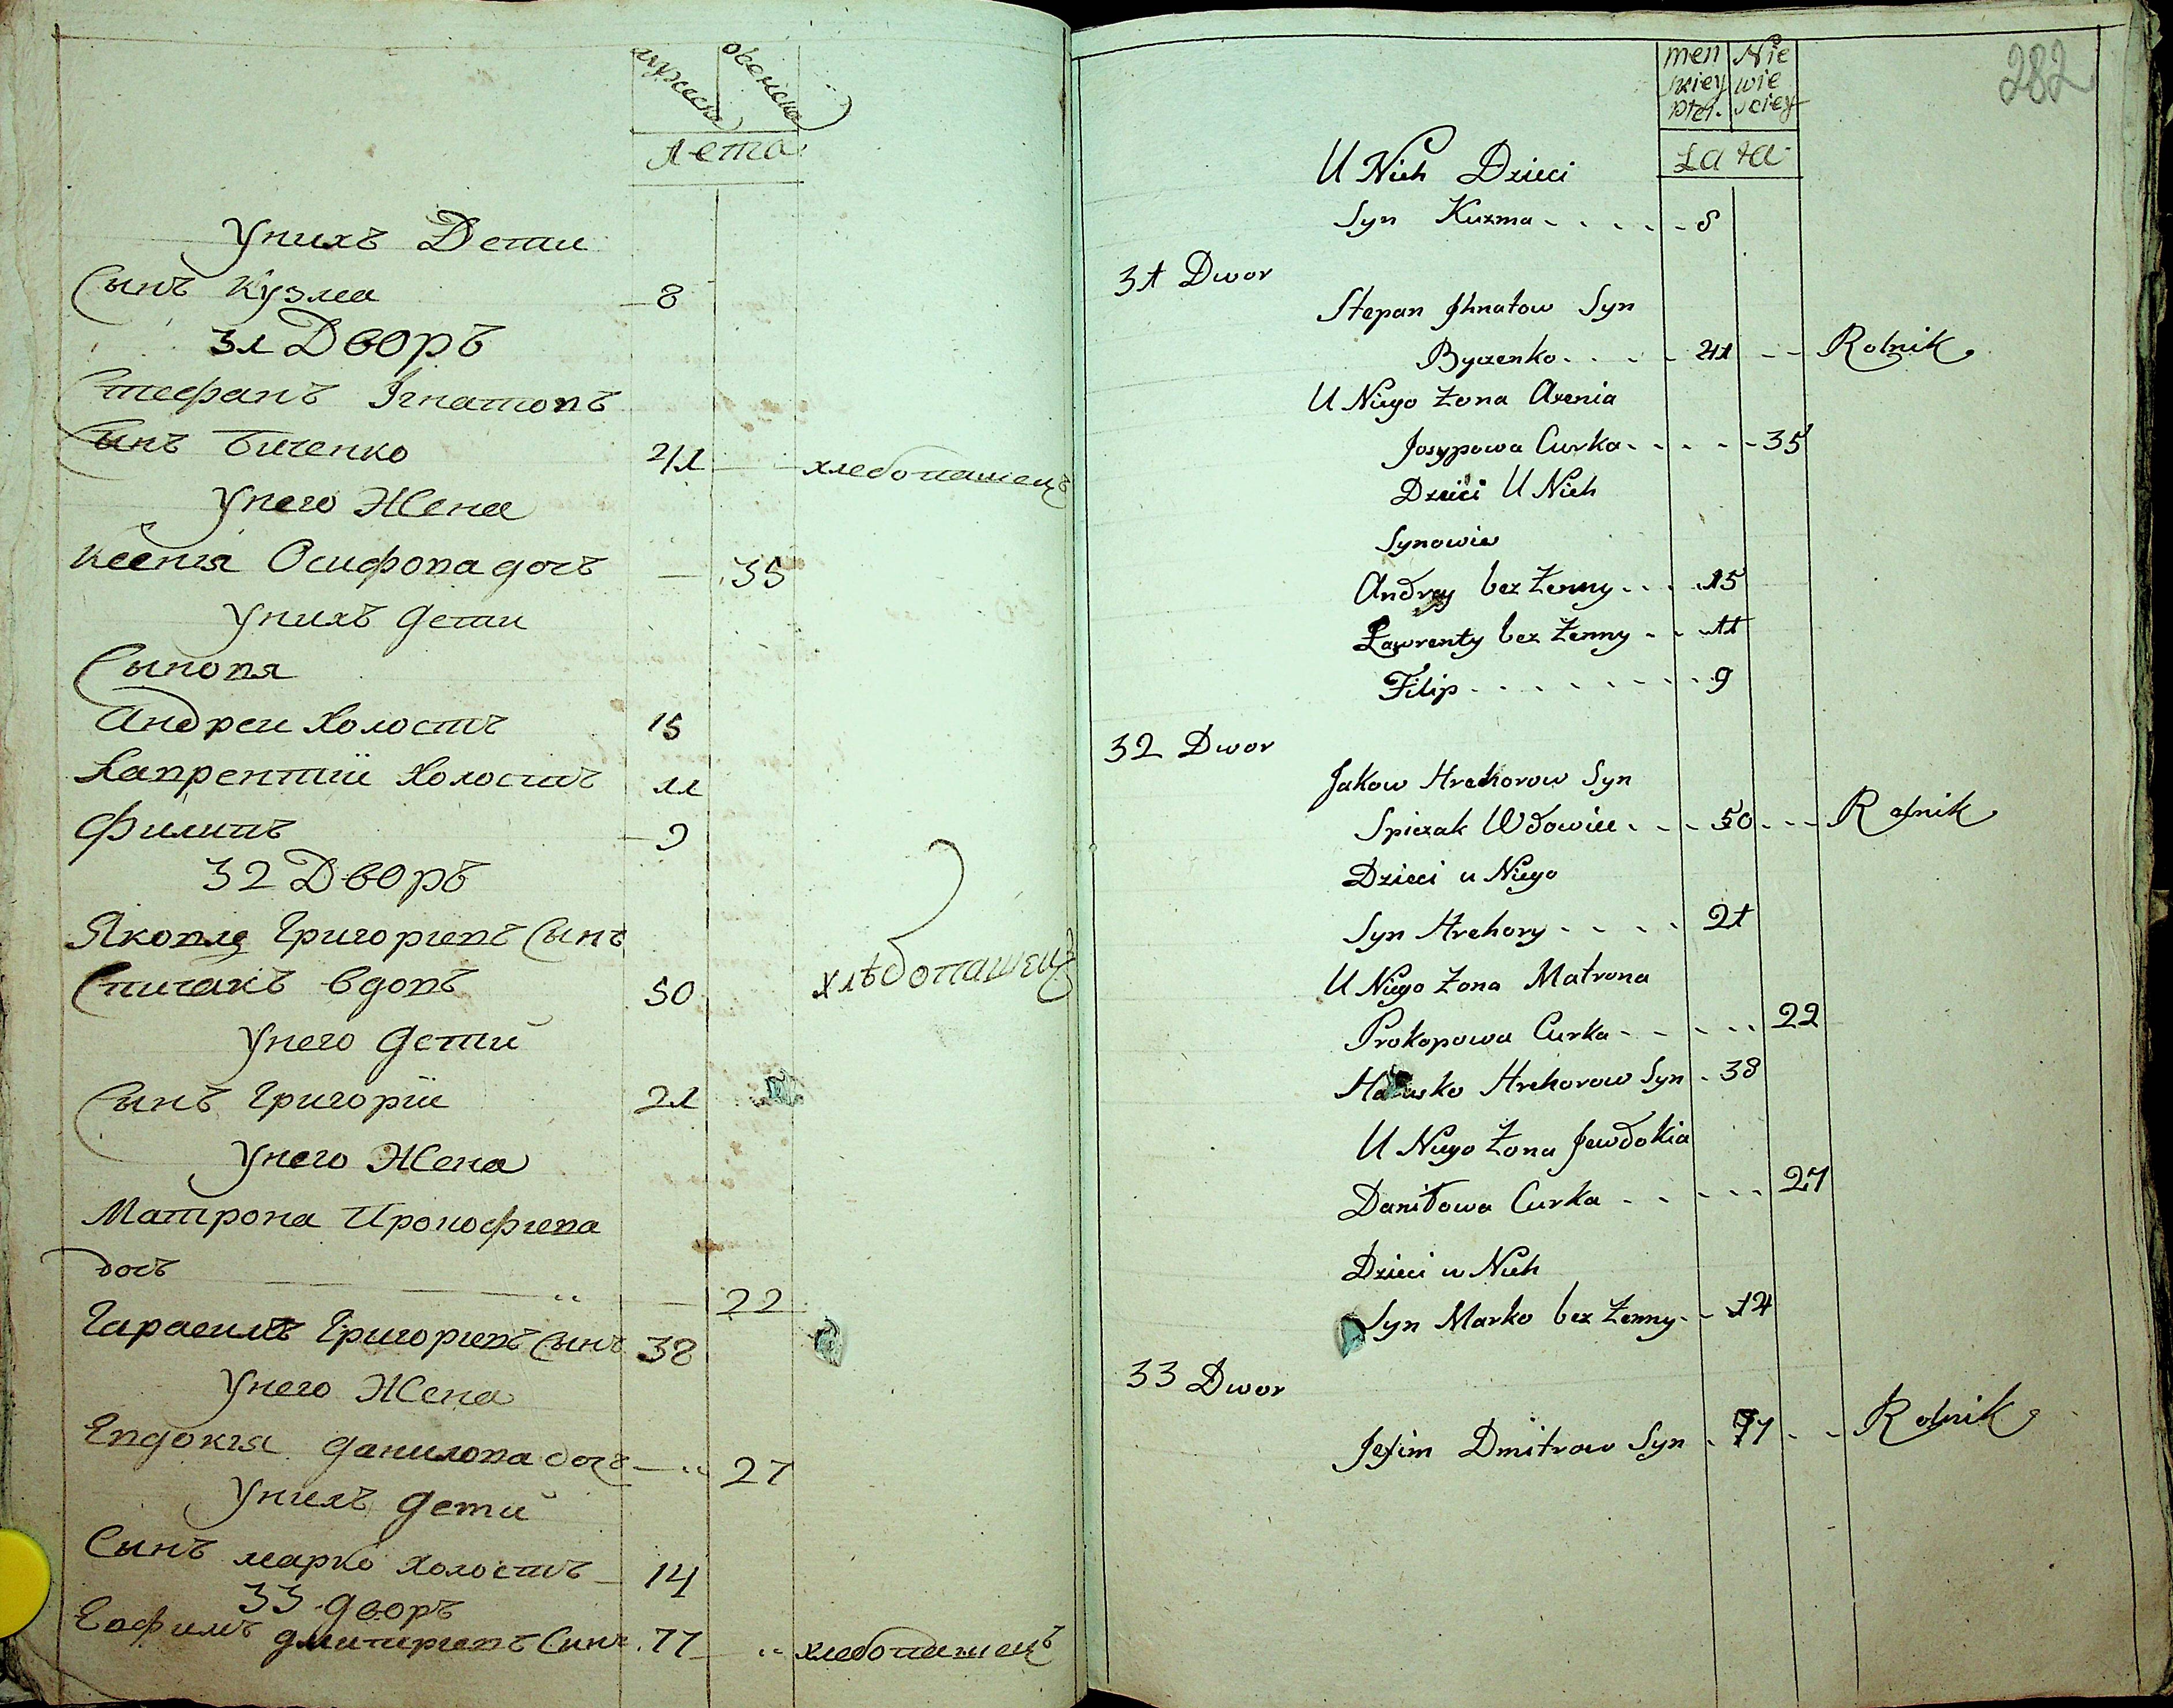 мужеска
женска
Лета
У нихъ Дети
Сынъ Кузма 8
31 Дворъ
Стефанъ Iгнатовъ
Сынъ Биченко 41 хлебопашецъ
У него Жена
Ксенiя Осифова дочъ 35
У нихъ дети
Сыновя
Андреи Холостъ 15
Лаврентiи Холостъ 11
Филипъ 9
32 Дворъ
Яковлъ Григориевъ Сынъ
Спичакъ вдовъ 50 хлѣбопашецъ
У него дети
Сынъ Григорiи 21
У него Жена
Матрона Прокофиева
дочъ 22
Гарасимъ Григориевъ Сынъ 38
У него Жена
Евдокiя данилова дочъ 27
У нихъ дети
Сынъ марко холостъ 14
33 дворъ
Еофимъ дмитриевъ Синъ 77 хлебопашецъ
282
men Nie
skiey wie
płci. sciey
Łata
U Nich Dzieci
Syn Kuzma 8
31 Dwor
Stepan Jhnatow Syn
Byczenko 41 Rolnik
U Niego Żona Axenia
Josypowa Curka 35
Dzieci U Nich
Synowie
Andrey bez Żenny 15
Ławrenty bez Żenny 11
Filip 9
32 Dwor
Jakow Hrehorow Syn
Spiczak Wdowiec 50 Rolnik
Dzieci u Niego
Syn Hrehory 21
U Niego Żona Matrona
Prokopowa Curka 22
Hrehorow Syn 38
U Niego Żona Jewdokia
Daniłowa Curka 27
Dzieci u Nich
Syn Marko bez Żenny 14
33 Dwor
Jefim Dmitrow Syn 77 Rolnik